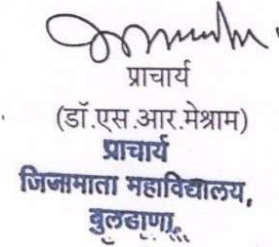 प्राचार्य
(डॉ.एस.आर.मेश्राम)
प्राचार्य
जिजामाता महाविद्यालय,
बुलढाणा.